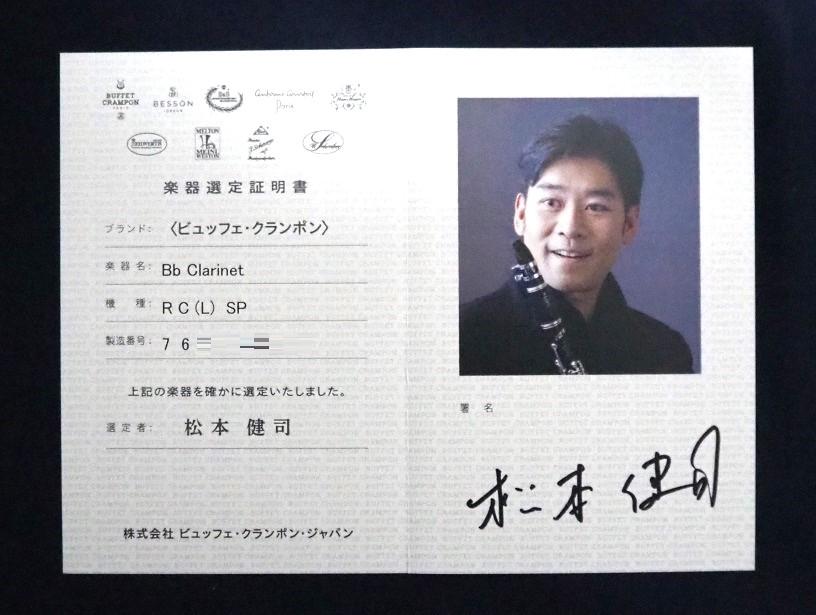 BUFFET
CRAMPON
PARIS
BESSON
LONDON
B&S
Antoine Courtois
Paris
Hans Hoyer
KEILWERTH
MELTON
MEINL
WESTON
J. Scherzer
W. Schreiber
楽器選定証明書
ブランド: 〈ビュッフェ・クランポン〉
楽器名: Bb Clarinet
機 種: R C (L) SP
製造番号: 7 6
上記の楽器を確かに選定いたしました。
選定者: 松本 健司
株式会社 ビュッフェ・クランポン・ジャパン
署 名
松本 健司